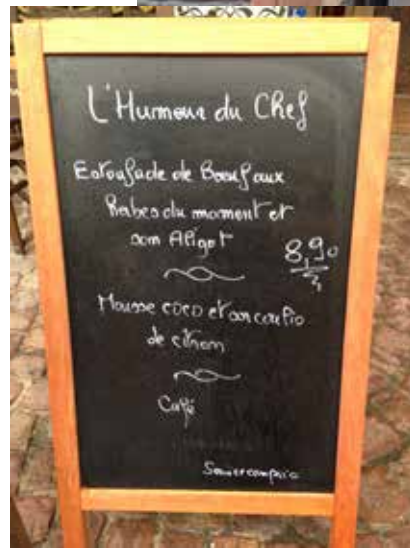 L'Humeur du Chef
Estoufade de Boeuf aux
Herbes du moment et
son Aligot
8,90
Mousse coco et son confio
de citron
Café
Service compris